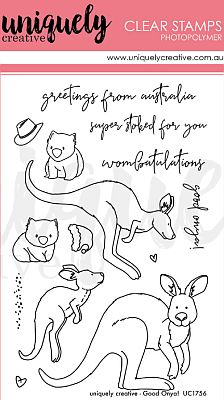 uniquely
creative
CLEAR STAMPS
PHOTOPOLYMER
www.uniquelycreative.com.au
greetings from australia
super stoked for you
wombatulations
good onya!
uniquely creative - Good Onya! UC1756